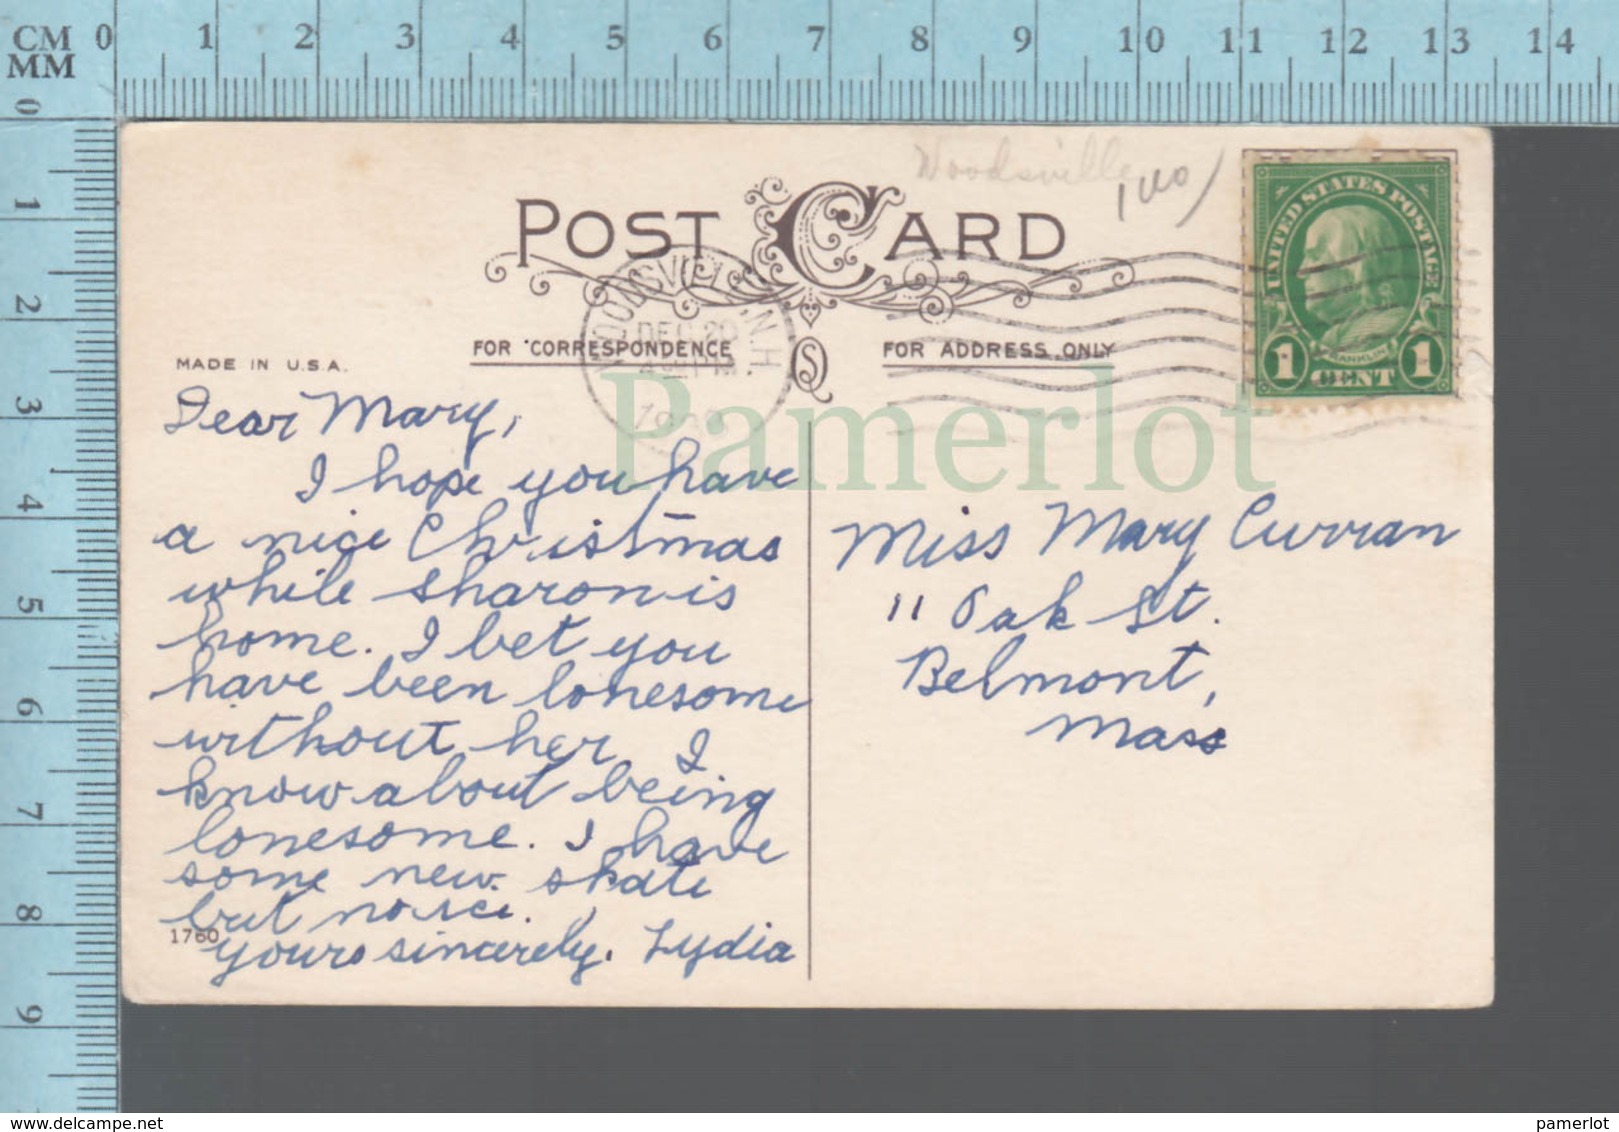 CM 0 1 2 3 4 5 6 7 8 9 10 11 12 13 14
MM
0
1
2
3
4
5
6
7
8
9
Woodsville
1 00/
POST CARD
UNITED STATES POSTAGE
FRANKLIN
1 CENT 1
WOODSVILLE N.H.
DEC 20
4 PM
MADE IN U.S.A.
FOR CORRESPONDENCE
FOR ADDRESS ONLY
Pamerlot
Dear Mary,
I hope you have
a nice Christmas
while Sharon is
home. I bet you
have been lonesome
without her I
know about being
lonesome. I have
some new skate
but no ice.
yours sincerely, Lydia
1760
Miss Mary Curran
11 Oak St.
Belmont,
Mass
www.delcampe.net
pamerlot